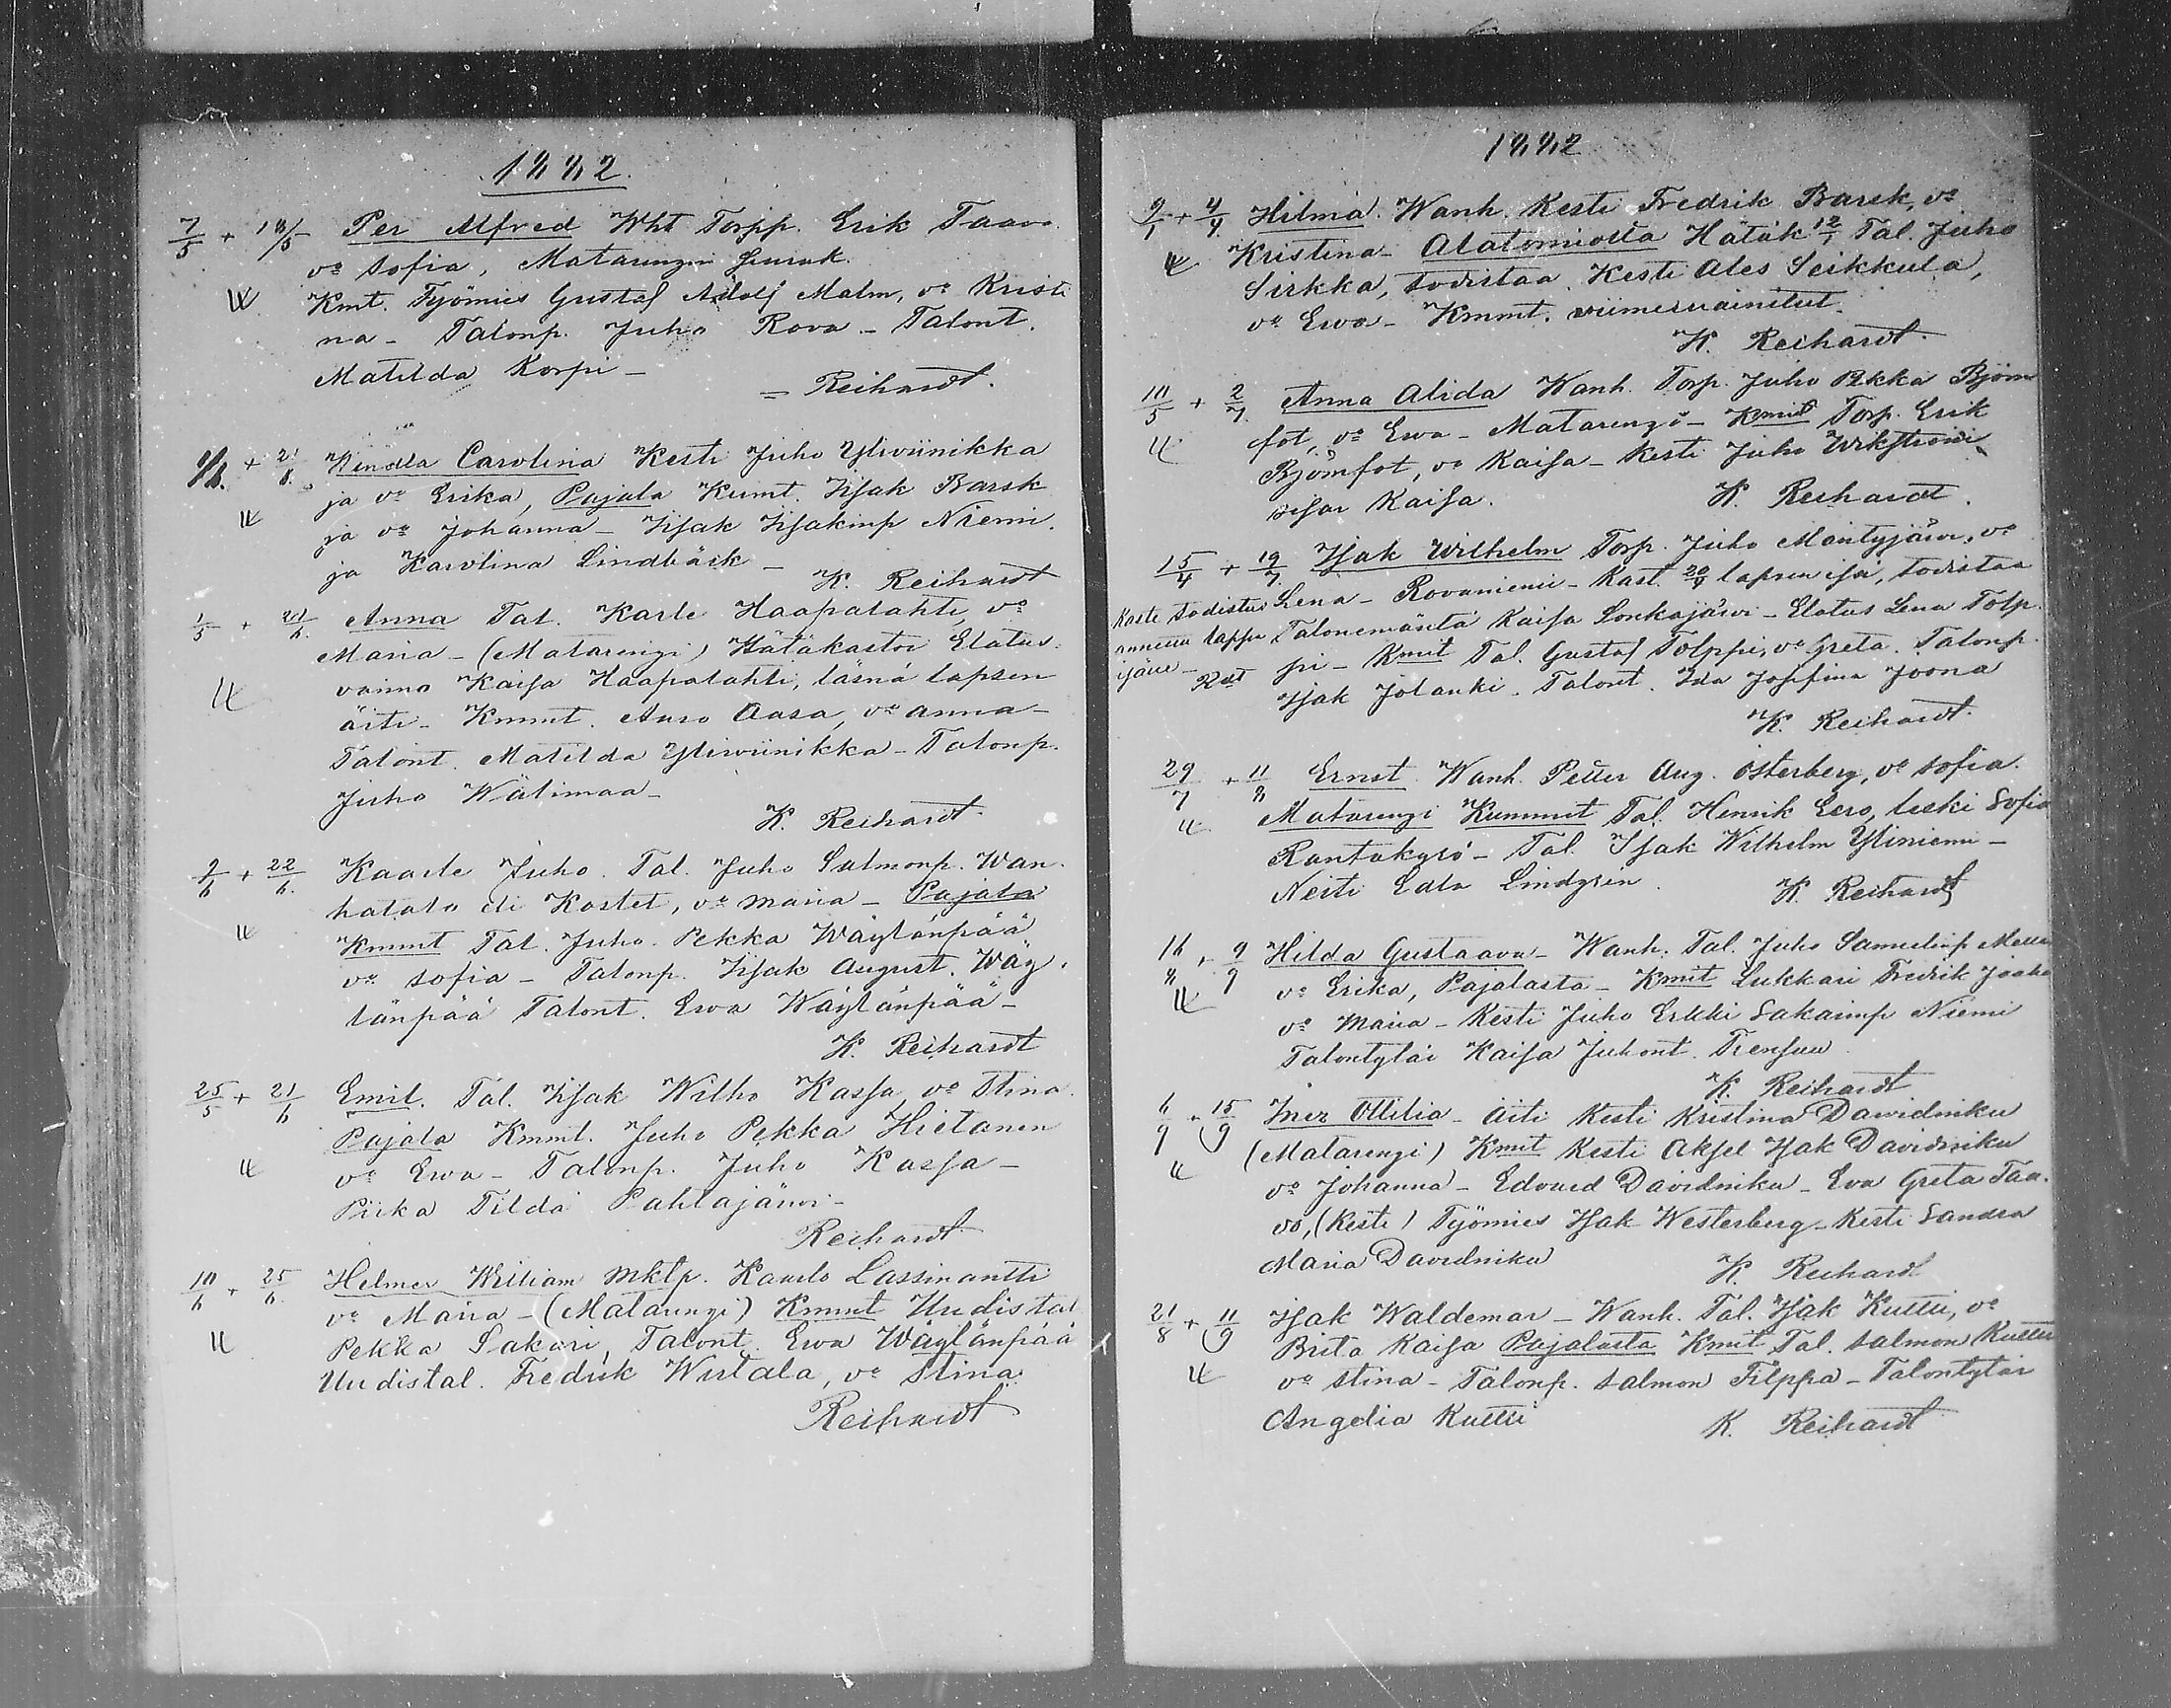 1882.
7/5 + 18/5 Per Alfred Wht Torpp. Erik Taavo
vo Sofia, Matarengin
Kmt. Työmies Gustaf Adolf Malm, vo Kristi
na - Talonp. Juho Rova - Talont.
Matilda Korpi -
= Reihardt.
+ 21/6. Carolina Kesti Juho Yliviinikka
ja vo Erika, Pajala Kummt. Iisak Barsk
ja vo Johanna - Iisak Iisakinp Niemi.
ja Karolina Lindbäck -
K. Reihardt
1/5 + 21/6. Anna Tal. Karle Haapalahti, vo
Maria - (Matarengi) Hätäkastoi Elatus
vaimo Kaisa Haapalahti, läsnä lapsen
äiti - Kmmt. Aaro Aasa, vo Anna -
Talont. Matilda Yliviinikka - Talonp.
Juho Wälimaa -
K. Reihardt.
9/6 + 22/6. Kaarle Juho. Tal. Juho Salmonp. Wan-
hatalo ei Kostet, vo Maria - Pajala
Kmmt Tal. Juho Pekka Wäylänpää
vo Sofia - Talonp. Iisak August. Wäy-
länpää Talont. Ewa Wäylänpää -
K. Reihardt
25/5 + 21/6 Emil. Tal. Iisak Wilho Kassa, vo Stina.
Pajala Kmmt. Juho Pekka Hietanen
vo Ewa - Talonp. Juho Kassa -
Piika Tilda Pahtajärwi -
Reihardt
10/6 + 25/6. Helmer William Mktp. Kaarlo Lassinantti
vo Maria - (Matarengi) Kmmt Uudistal
Pekka Sakari, Talont. Ewa Wäylänpää
Uudistal. Fredrik Wirtala, vo Stina.
Reihardt
1882
9/1 + 4/4 Hilma. Wanh. Kesti Fredrik Barsk, vo
Kristina - Alatorniolta Hätäk 12/1 Tal. Juho
Sirkka, todistaa. Kesti Ales Seikkula,
vo Ewa - Kmmt. viimesmainitut.
K. Reihardt.
10/5 + 2/7. Anna Alida Wanh. Torp. Juho Pekka Björn
fot, vo Ewa - Matarengi - Kmit Torp. Erik
Björnfot, vo Kaisa - Kesti Juho Wikström
sisar Kaisa.
K. Reihardt.
15/4 + 19/7. Isak Wilhelm Torp. Juho Mäntyjärvi, vo
Kaste todistus Lena - Rovaniemi - Kast. 20/4 lapsen isä, todistaa
Talonemäntä Kaisa Lonkajärvi - Elatus Lena Tolp.
pi - Kmit Tal. Gustaf Tolppi, vo Greta. Talonp.
Isak Jolanki. Talont. Ida Josefina Joona
K. Reihardt.
29/7 + 11/8 Ernst. Wanh. Petter Aug. Österberg, vo Sofia.
Matarengi Kummit Tal. Henrik Eero, leski Sofia
Rantakyrö - Tal. Isak Wilhelm Yliniemi -
Neiti Edla Lindgrén.
K. Reihardt
16/8 + 9/9 Hilda Gustaava - Wanh. Tal. Juho Samuelinp
vo Erika, Pajalasta - Kmit Lukkari Fredrik Jaako
vo Maria - Kesti Juho Erkki Sakarinp Niemi
Talontytär Kaisa Juhont.
K. Reihardt
6/9 + 15/9 Inez Ottilia - Äiti Kesti Kristina Davidniku
(Matarengi) Kmit Kesti Aksel Isak Davidniku
vo Johanna - Edvard Davidniku - Eva Greta Taa-
vo, (Kesti) Työmies Isak Westerberg - Kesti Sandra
Maria Davidniku
K. Reihardt
21/8 + 11/9 Isak Waldemar - Wanh. Tal. Isak Kutti, vo
Brita Kaisa Pajalasta Kmit Tal. Salmon Kutti
vo Stina - Talonp. Salmon Filppa - Talontytär
Angelia Kutti
K. Reihardt